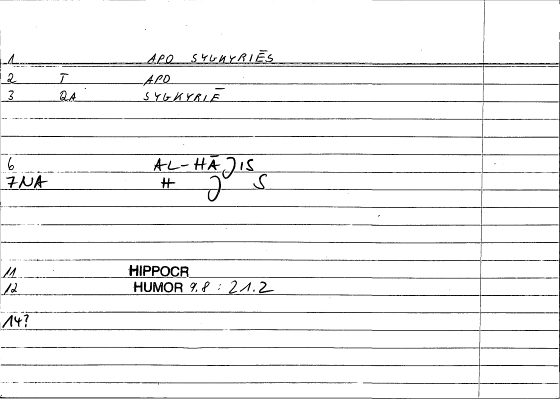 1 APO SYGKYRIĒS
2 T APO
3 QA SYGKYRIĒ
6 AL-HĀJIS
7NA H J S
11 HIPPOCR
12 HUMOR 9.8 : 21.2
14?